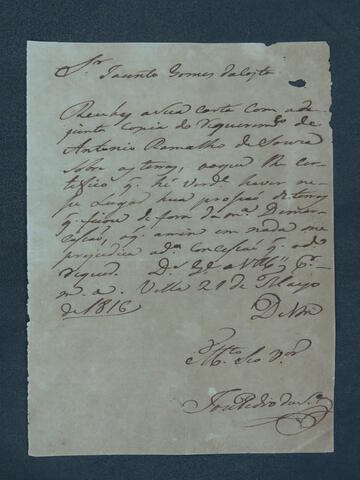 Snr Jacinto Gomes da Costa
Recebỹ a Sua carta com a de
junta Copia do Requerimto de
Antonio Ramalho de Souza
sobre as terras, aoque lhe cer
tefico q. hé verde haver ne
se Lugar hua de terras
q. ficou de fora da ma Demar
casaõ, q. amim em nada me
prejudica a da Concesaõ q. o do
Requer. Ds Ge a Vmce
m. a. Villa 21 de Mayo
de 1816
DeVme
Mto Seo Vor
Joze Pedro da Sa